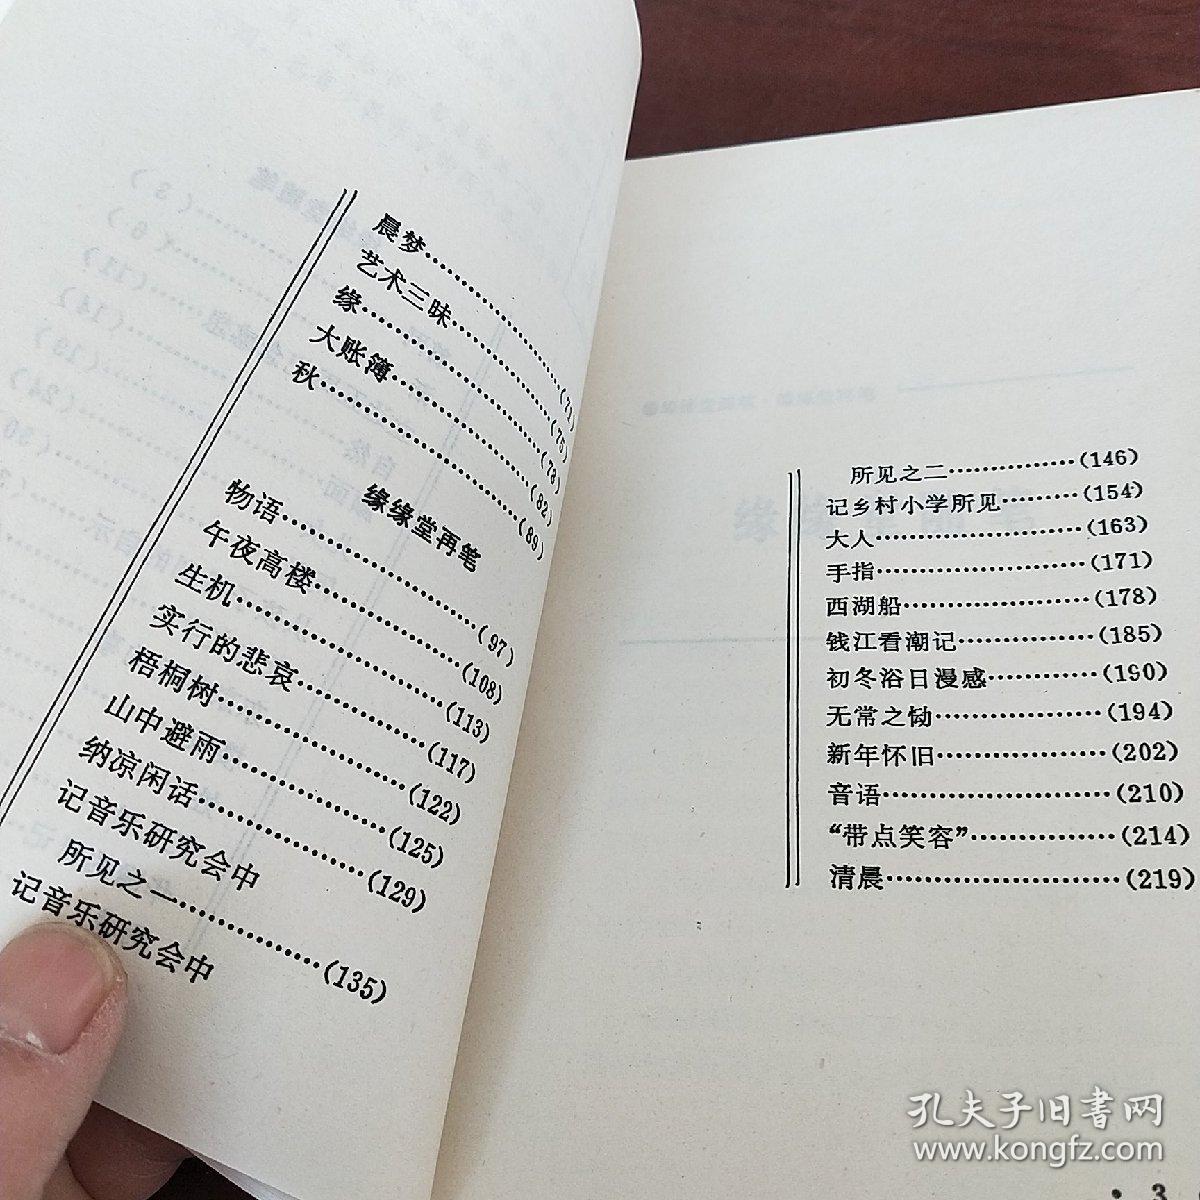 晨梦……………………(71)
艺术三昧………………(75)
缘………………………(78)
大账簿…………………(82)
秋………………………(89)
缘缘堂再笔
物语……………………(97)
午夜高楼………………(108)
生机……………………(113)
实行的悲哀……………(117)
梧桐树…………………(122)
山中避雨………………(125)
纳凉闲话………………(129)
记音乐研究会中
所见之一………………(135)
记音乐研究会中
所见之二……………(146)
记乡村小学所见………(154)
大人……………………(163)
手指……………………(171)
西湖船…………………(178)
钱江看潮记……………(185)
初冬浴日漫感…………(190)
无常之恸………………(194)
新年怀旧………………(202)
音语……………………(210)
“带点笑容”……………(214)
清晨……………………(219)
孔夫子旧书网
www.kongfz.com
· 3